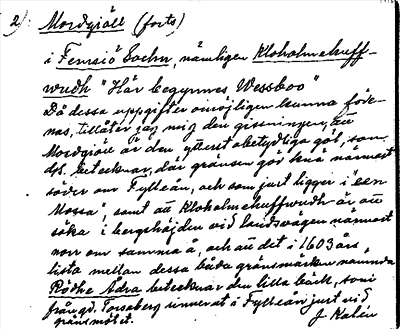 2) Mordgiäll (forts)
i Femsiö Sochn, nämligen Kloholmekuff-
wudh "Här begynnes Wessboo"
Då dessa uppgifter omöjligen kunna före-
nas, tillåter jag mig den gissningen, att
Mordgiäll är den ytterst obetydliga göl, som
dps. betecknar, där gränsen gör knä närmast
söder om Fylleån, och som just ligger i "een
Mossa", samt att Kloholmekuffwudh är att
söka i bergshöjden vid landsvägen närmast
norr om samma å, och att det i 1603 års
lista mellan dessa båda gränsmärken nämnda
Rödhe Adra betecknar den lilla bäck, som
från gd. Torseberg rinner ut i Fylleån just vid
gränsmötet. J. Kalén